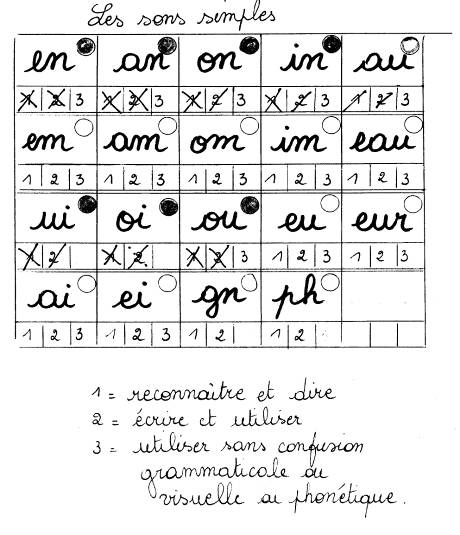 Les sons simples
en an on in au
1 2 3 1 2 3 1 2 3 1 2 3 1 2 3
em am om im eau
1 2 3 1 2 3 1 2 3 1 2 3 1 2 3
ui oi ou eu eur
1 2 1 2 1 2 3 1 2 3 1 2 3
ai ei gn ph
1 2 3 1 2 3 1 2 1 2
1 = reconnaître et dire
2 = écrire et utiliser
3 = utiliser sans confusion
grammaticale ou
visuelle ou phonétique.